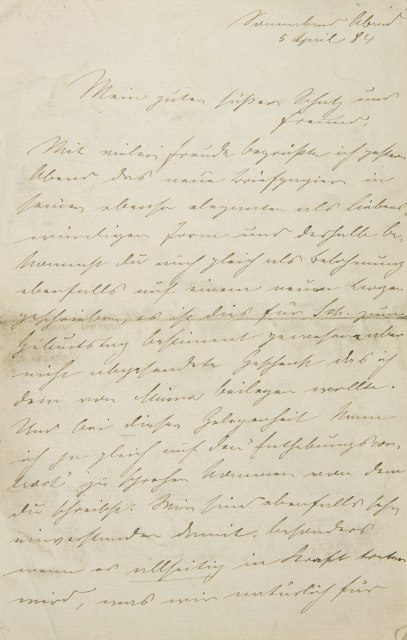 Sonnabend Abend
5 April 84
Mein guter süßer Schatz und
Freund
Mit vieler Freude begrüßte ich gestern
Abend das neue Briefpapier in
seiner ebenso eleganten als liebens
würdigen Form und deshalb be-
kommst du auch gleich als Belohnung
ebenfalls auf einem neuen Bogen
geschrieben, es ist dies für Sch. zum
Geburtstag bestimmt gewesen aber
nicht abgesendete Geschenk das ich
dem von Minna beilegen wollte.
Und bei dieser Gelegenheit kann
ich ja gleich auf den "Enthebungscon-
tract" zu sprechen kommen von dem
du schreibst. Wir sind ebenfalls sehr
einverstanden damit, besonders
wenn er allseitig in Kraft treten
wird, was wir natürlich für